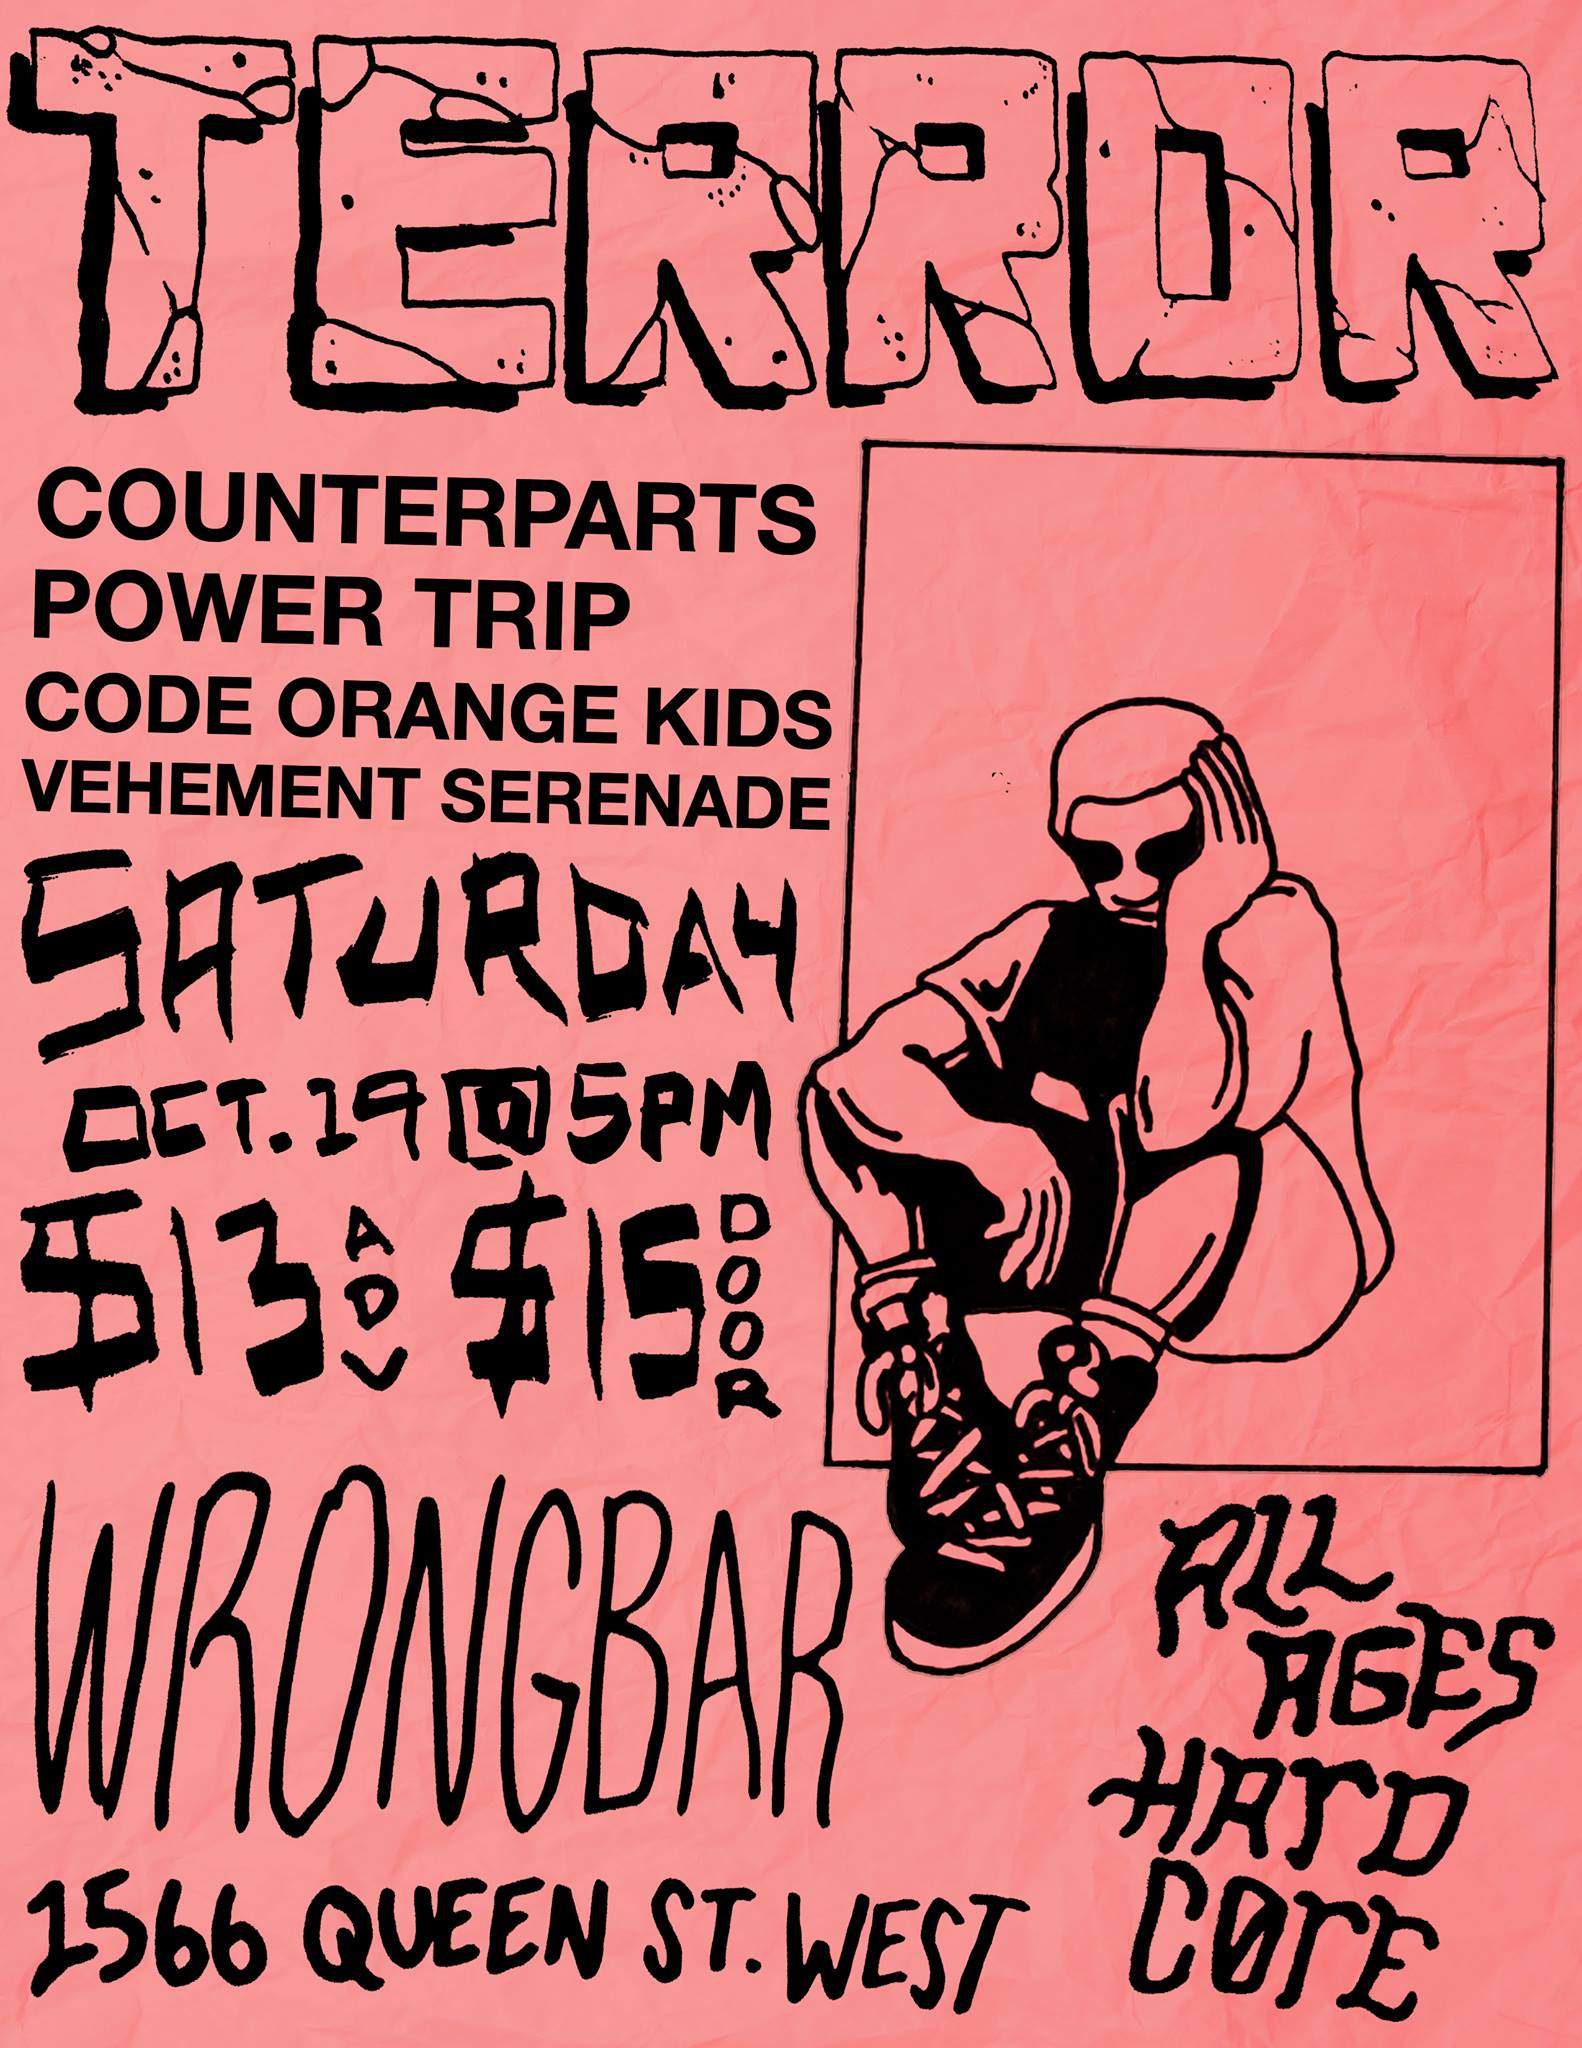 TERROR
COUNTERPARTS
POWER TRIP
CODE ORANGE KIDS
VEHEMENT SERENADE
SATURDAY
OCT. 19 @ 5PM
$13 ADV $15 DOOR
WRONGBAR
1566 QUEEN ST. WEST
ALL
AGES
HARD
CORE